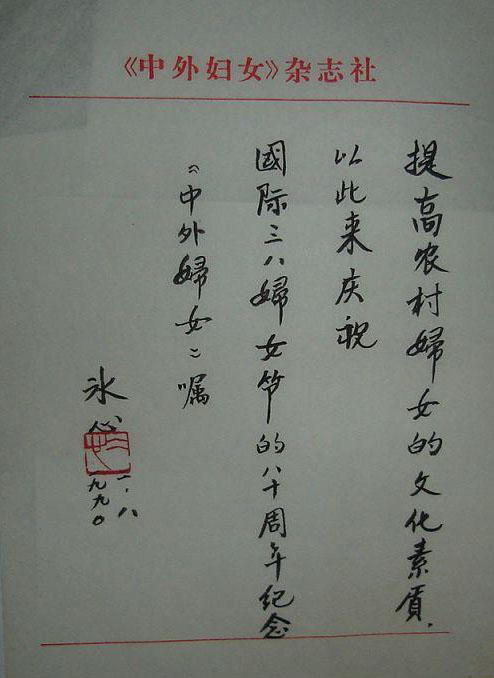 《中外妇女》杂志社
提高农村婦女的文化素質.
以此来庆祝
國际三八婦女节的八十周年纪念
《中外婦女》嘱
冰心
一.八
一九九〇